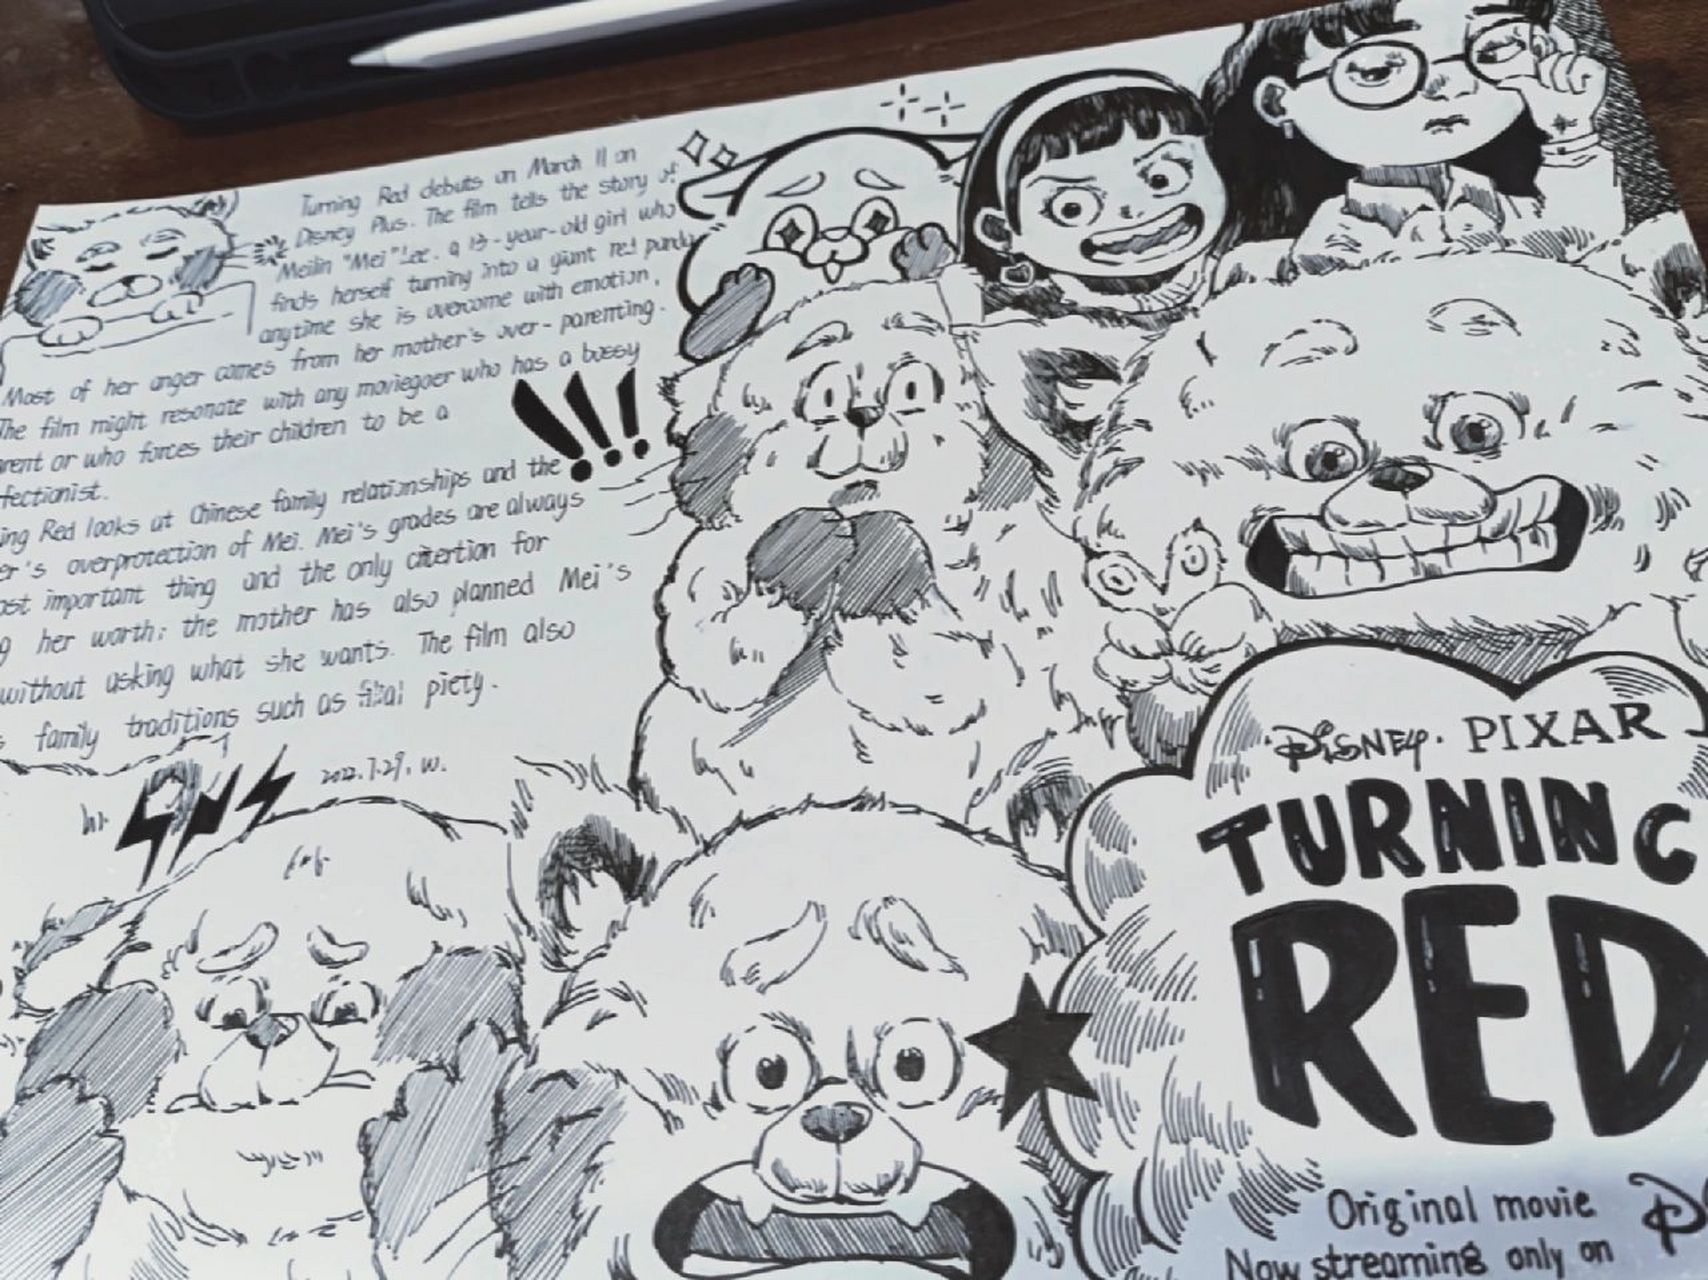 Turning Red debuts on March 11 on
Disney Plus. The film tells the story of
Meilin "Mei" Lee. a 13-year-old girl who
finds herself turning into a giant red panda
anytime she is overcome with emotion.
Most of her anger comes from her mother's over-parenting.
The film might resonate with any moviegoer who has a bossy
rent or who forces their children to be a
fectionist.
ing Red looks at Chinese family relationships and the
er's overprotection of Mei. Mei's grades are always
ost important thing and the only citertion for
g her worth; the mother has also planned Mei's
without asking what she wants. The film also
s family traditions such as filial piety.
2022.7.29. W.
!!!
DISNEY. PIXAR
TURNING
RED
Original movie
Now streaming only on
D